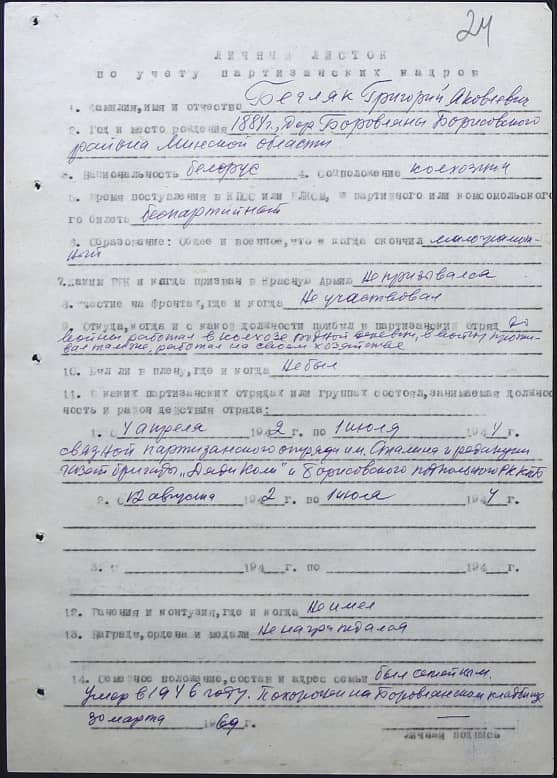 24
ЛИЧНЫЙ ЛИСТОК
по учету партизанских кадров
1. Фамилия, имя и отчество Бегляк Григорий Яковлевич
2. Год и место рождения 1884г., дер Боровляны Борисовского
района Минской области
3. Национальность белорус 4. Соцположение колхозник
5. Время поступления в КПСС или ВЛКСМ, № партийного или комсомольского
го билета беспартийной
6. Образование: Общее и военное, что и когда окончил малограмот-
ный
7. Каким РВК и когда призван в Красную Армию Не призывался
8. Участие на фронтах, где и когда Не участвовал
9. Откуда, когда и с какой должности прибыл в партизанский отряд до
войны работал в колхозе родной деревни, в войну прожи-
вал там же, работал на своем хозяйстве
10. Был ли в плену, где и когда Не был
11. В каких партизанских отрядах или группах состоял, занимаемая должность
ность и район действия отряда:
1. С 4 апреля 1942 г. по 1 июля 1944 г.
связной партизанского отряда им. Сталина и редакции
газет бригады "Дяди Коли" и Борисовского подпольного РК КПБ
2. С 12 августа 1942 г. по 1 июля 1944 г.
3. С 194 г. по 194 г.
12. Ранения и контузия, где и когда Не имел
13. Награды, ордена и медали Не награждался
14. Семейное положение, состав и адрес семьи был семейным.
Умер в 1946 году. Похоронен на Боровлянском кладбище
30 марта 1969 г. —
личная подпись